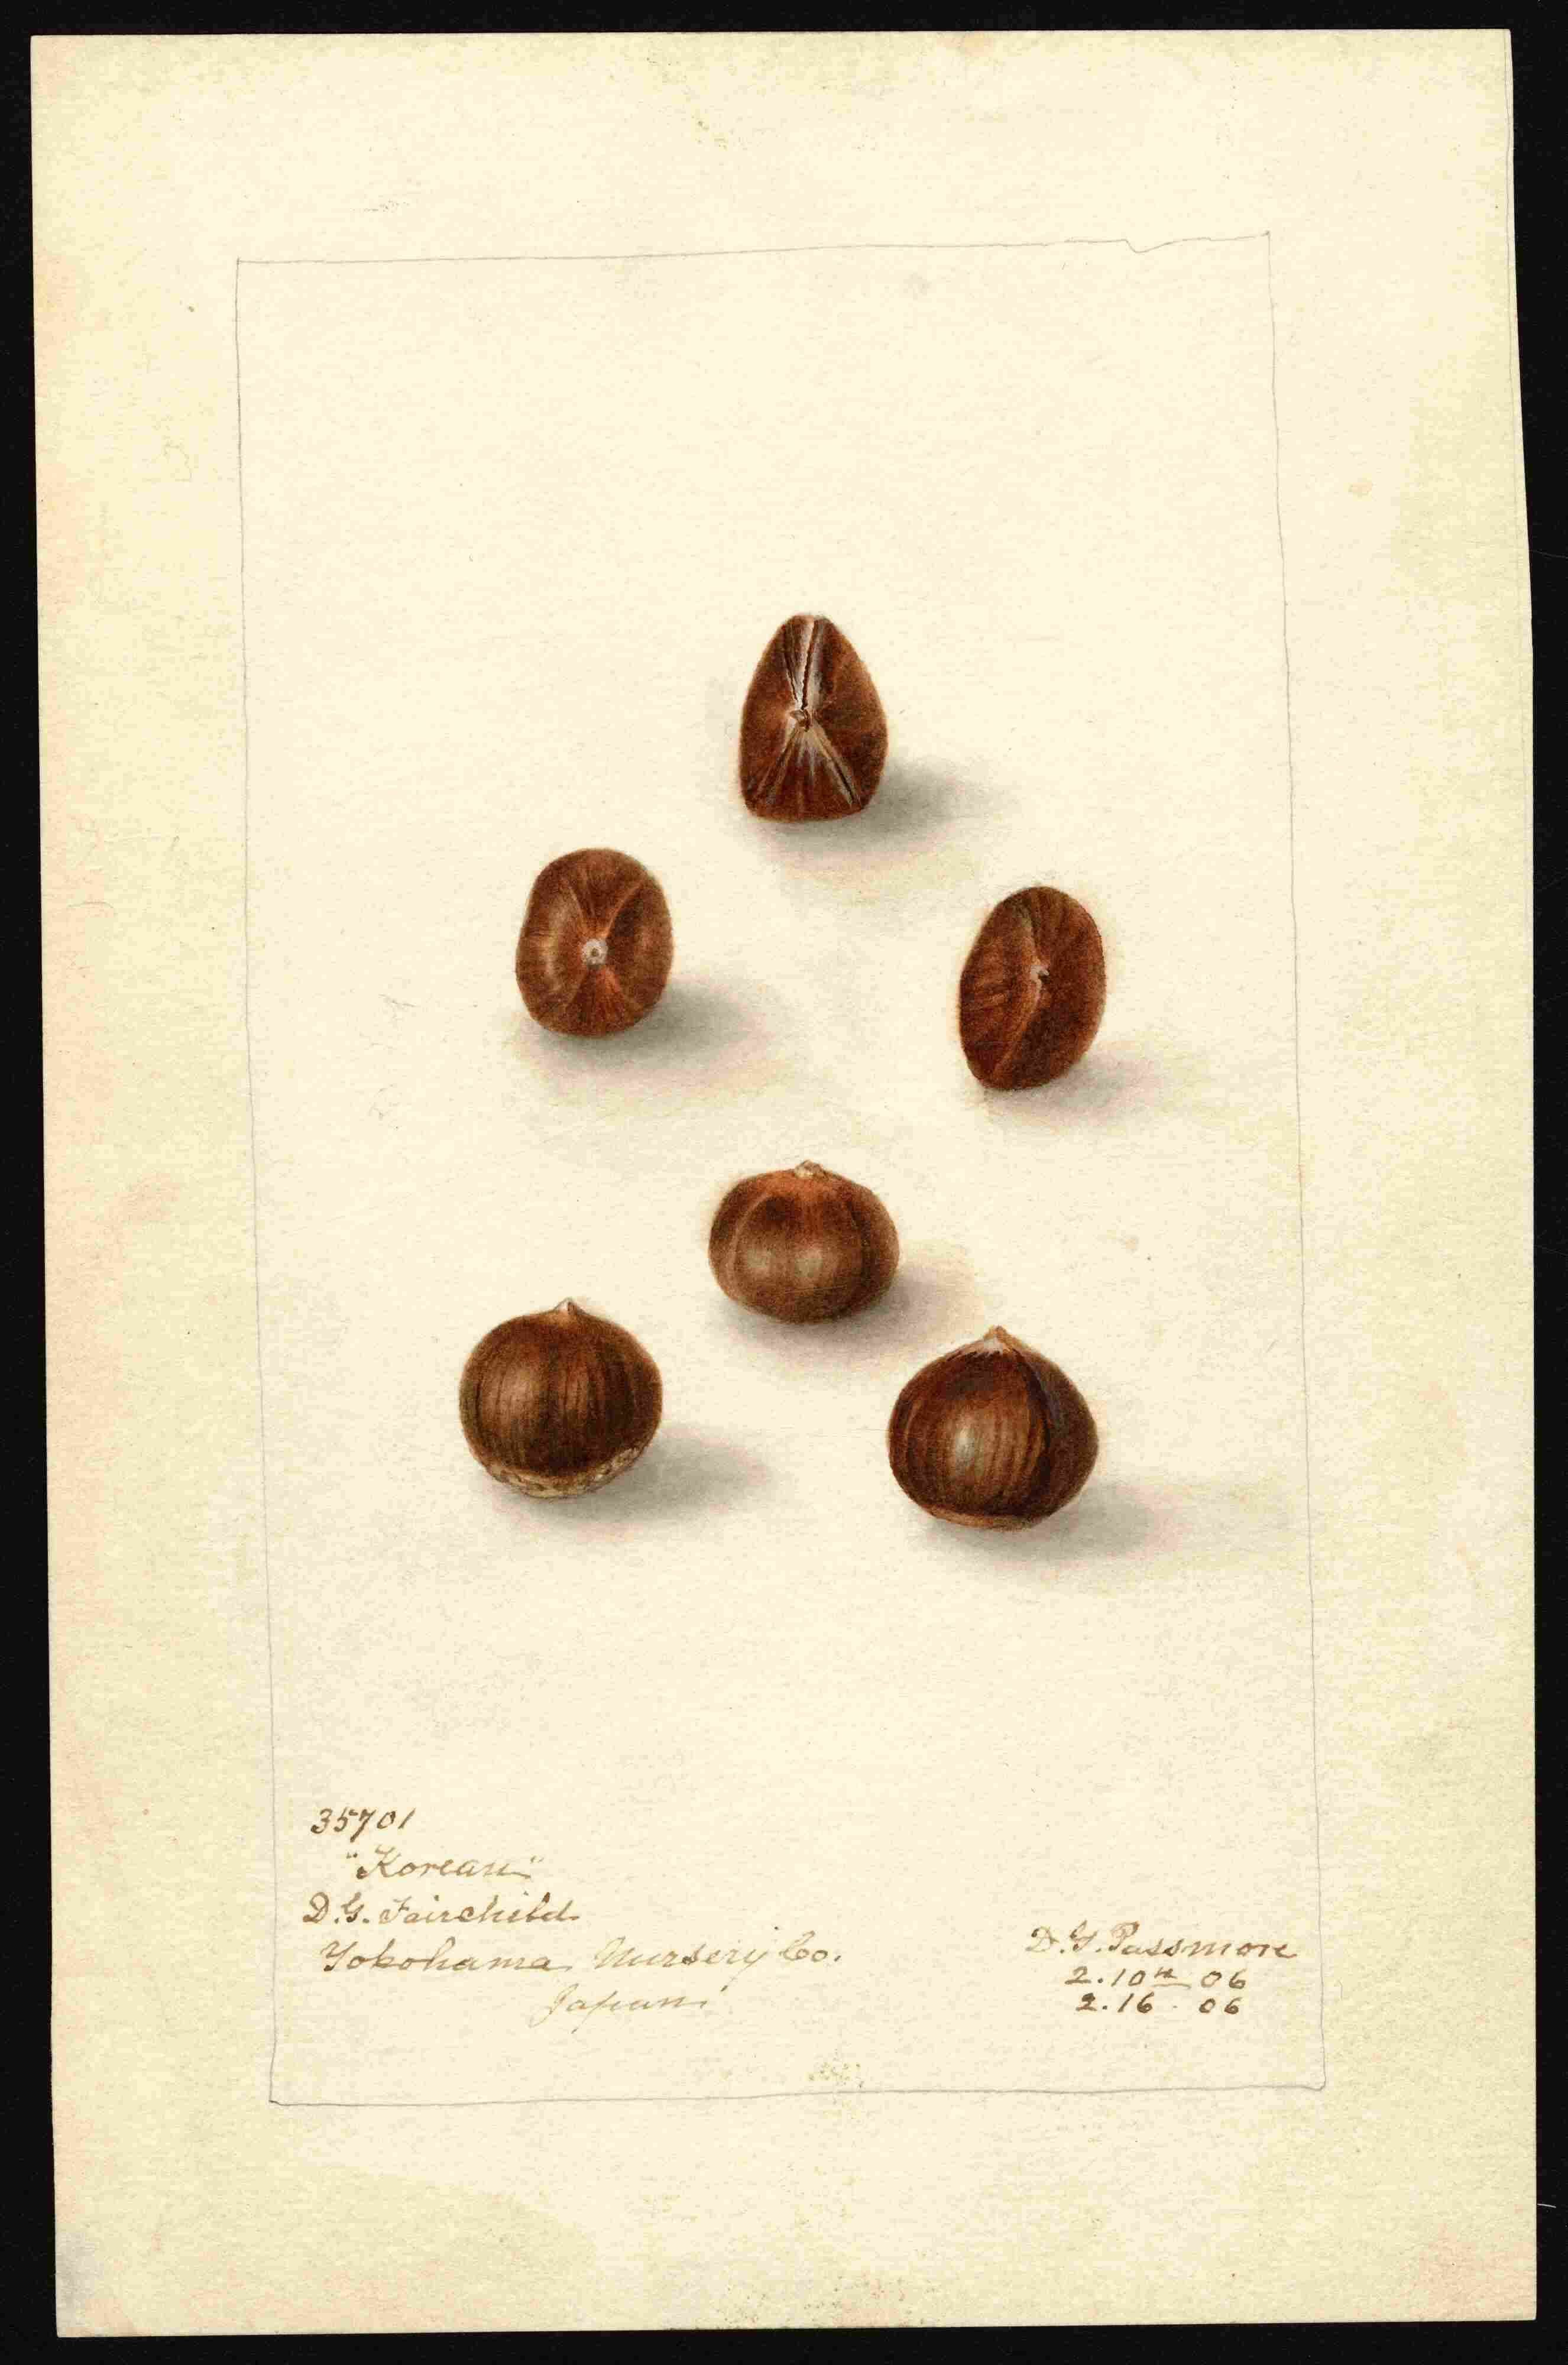 35701
"Korean"
D.G. Fairchild
Yokohama Nursery Co.
Japan
D.G. Passmore
2.10th 06
2.16. 06